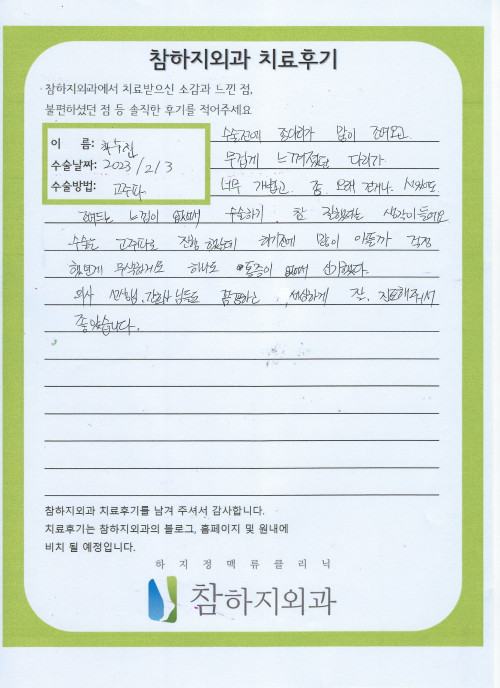 참하지외과 치료후기
참하지외과에서 치료받으신 소감과 느낀 점,
불편하셨던 점 등 솔직한 후기를 적어주세요
이 름:
수술날짜: 2023/2/3
수술방법: 고주파
수술전에 종아리가 많이 저려오고
무겁게 느껴졌던 다리가
너무 가볍고 좀 오래 걷거나 서있어도
저려드는 느낌이 없어서 수술하기 참 잘했다는 생각이 들어요
수술은 고주파로 진행 했는데 하기전에 많이 아플까 걱정
했던게 무색하게요 하나도 통증이 없어서 신기했다.
의사 선생님, 간호사님들도 꼼꼼하고, 세심하게 잘, 치료해주셔서
좋았습니다.
참하지외과 치료후기를 남겨 주셔서 감사합니다.
치료후기는 참하지외과의 블로그, 홈페이지 및 원내에
비치 될 예정입니다.
하지정맥류클리닉
참하지외과